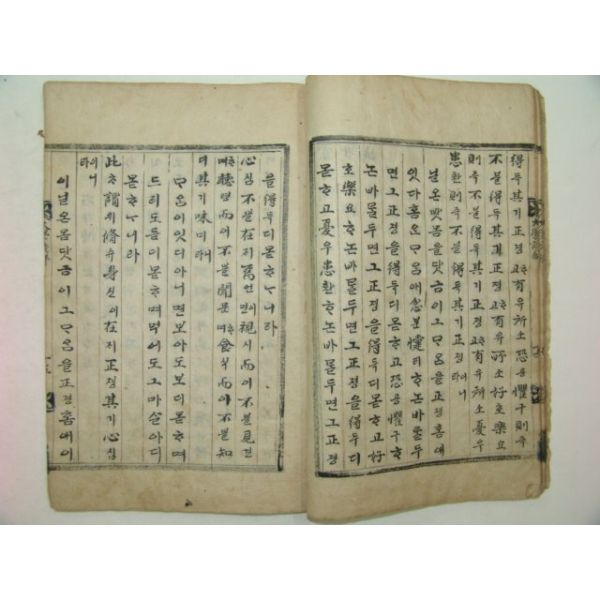 得득其기正졍ᄒᆞ고有유所소恐공懼구則즉
不블得득其기正졍ᄒᆞ고有유所소好호樂요
則즉不블得득其기正졍ᄒᆞ고有유所소憂우
患환則즉不블得득其기正졍이니라
닐온몸을닷금이그ᄆᆞᄋᆞᆷ을正졍홈애
잇다홈은ᄆᆞᄋᆞᆷ애忿분懥티ᄒᆞᄂᆞᆫ바ᄅᆞᆯ두
면그正졍을得득디몯ᄒᆞ고恐공懼구ᄒᆞ
ᄂᆞᆫ바ᄅᆞᆯ두면그正졍을得득디몯ᄒᆞ고好
호樂요ᄒᆞᄂᆞᆫ바ᄅᆞᆯ두면그正졍을得득디
몯ᄒᆞ고憂우患환ᄒᆞᄂᆞᆫ바ᄅᆞᆯ두면그正졍
을得득디몯ᄒᆞᄂᆞ니라
心심不블在ᄌᆡ焉언이면視시而이不블見견
ᄒᆞ며聽텽而이不블聞문ᄒᆞ며食식而이不블知
디其기味미니라
ᄆᆞᄋᆞᆷ이잇디아니면보아도보디몯ᄒᆞ며
드러도듣디몯ᄒᆞ며먹어도그마슬아디
몯ᄒᆞᄂᆞ니라
此ᄎᆞ謂위修슈身신이在ᄌᆡ正졍其기心심
이니라
이닐온몸닷금이그ᄆᆞᄋᆞᆷ을正졍홈애이